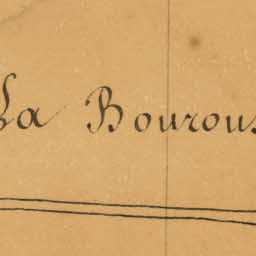 La Bourous